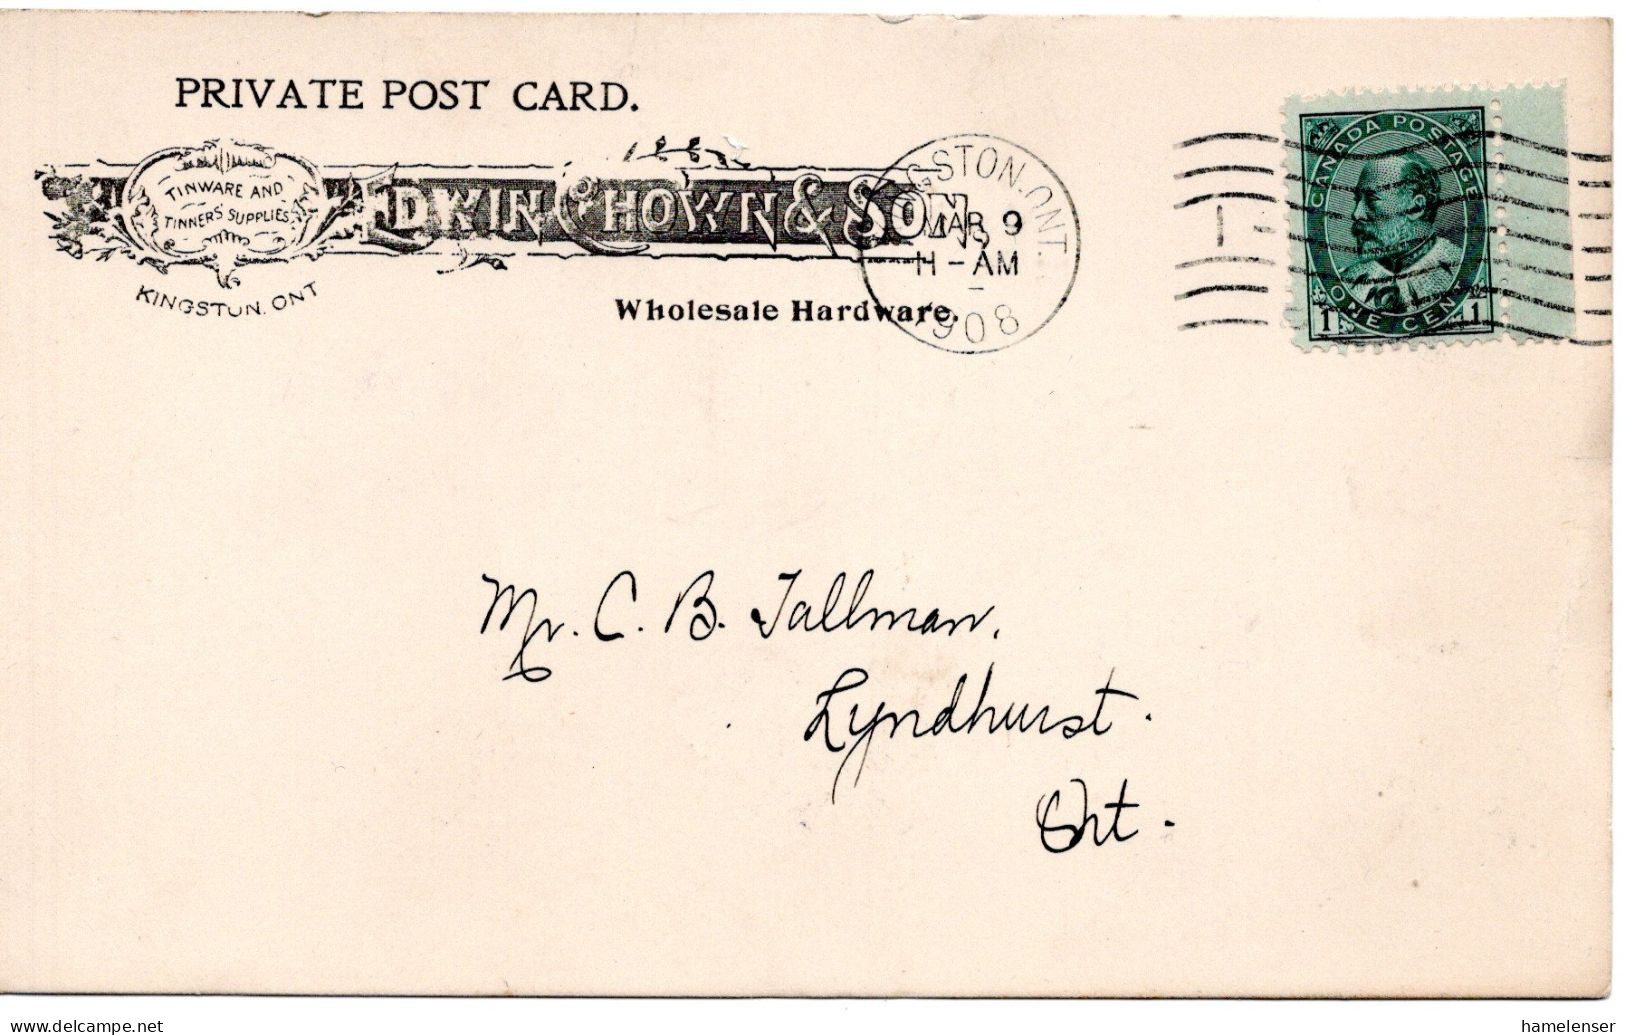 PRIVATE POST CARD.
TINWARE AND
TINNERS' SUPPLIES
EDWIN CHOWN & SON,
KINGSTON, ONT
Wholesale Hardware.
GSTON. ONT.
MAR 9
11 - AM
1908
1
CANADA POSTAGE
ONE CENT
1 1
Mr. C. B. Tallman,
Lyndhurst.
Ont.
www.delcampe.net
hamelenser